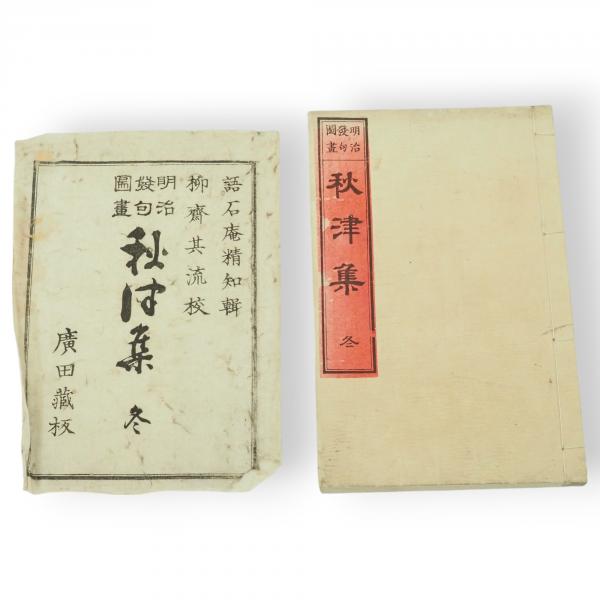 語石庵精知輯
柳齋其流校
明治
發句
圖畫
秋津集 冬
廣田藏板
明治
發句
圖畫
秋津集
冬